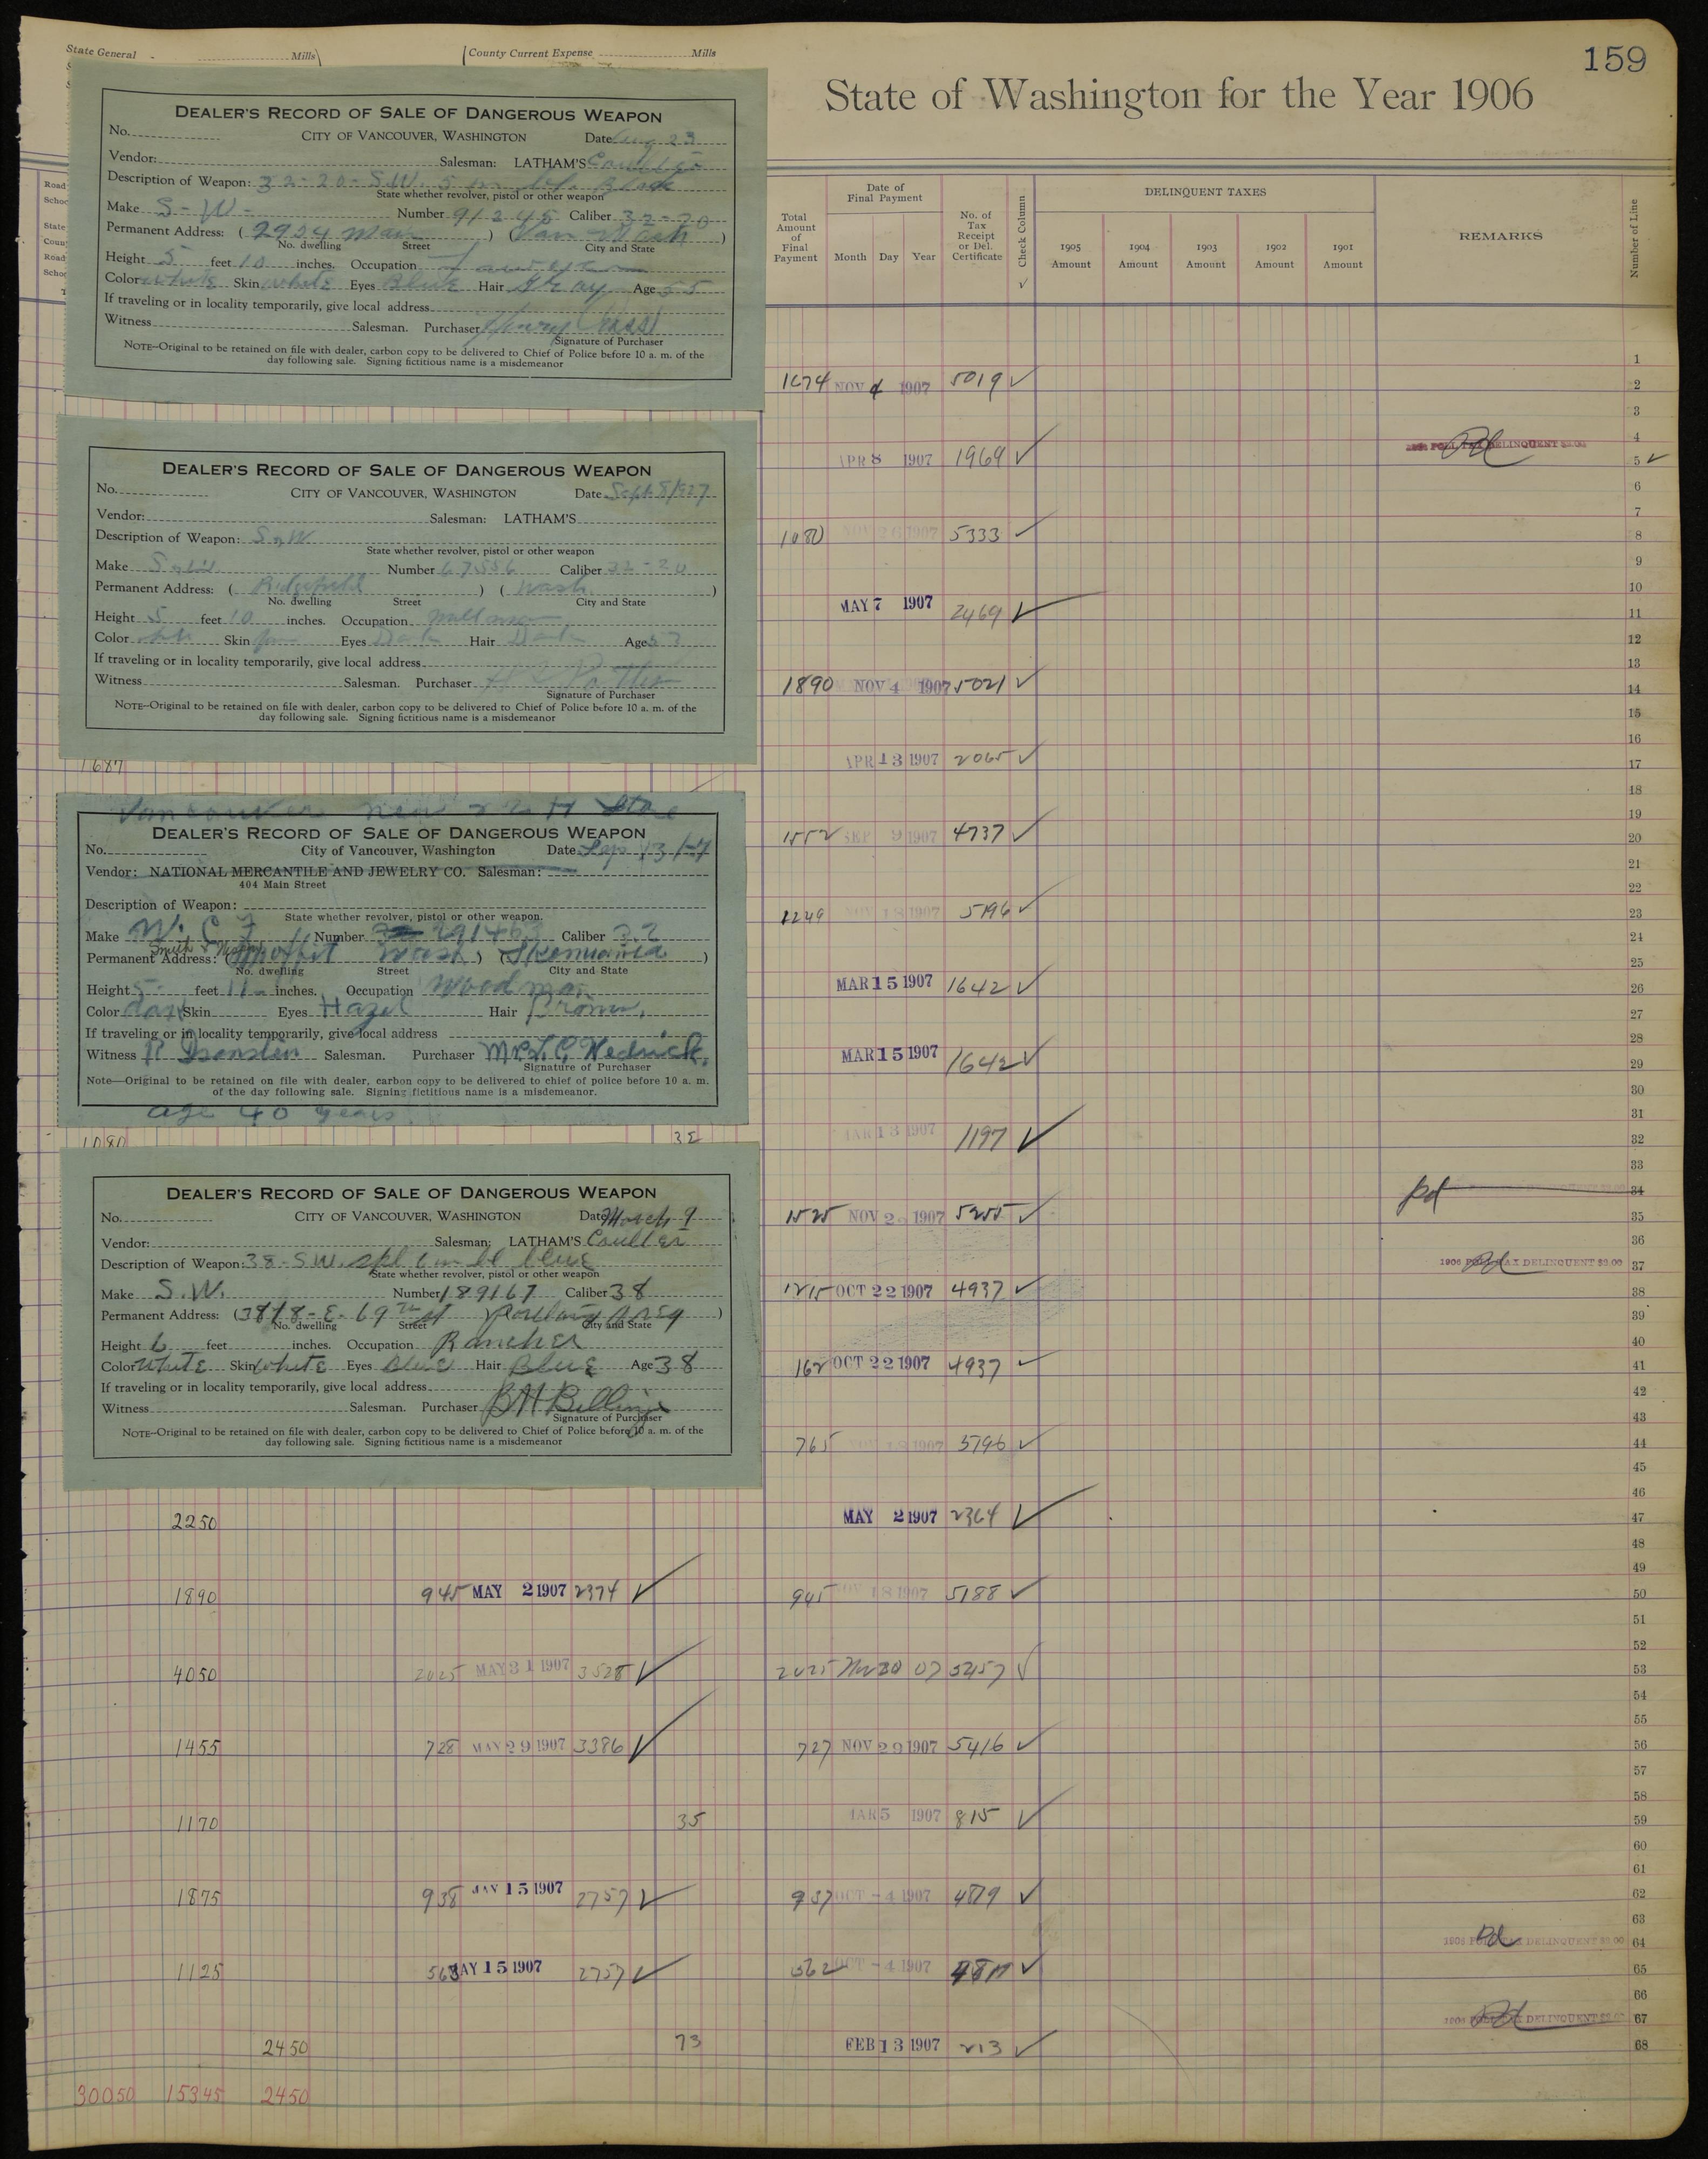 159
State General Mills
County Current Expense Mills
State of Washington for the Year 1906
DEALER'S RECORD OF SALE OF DANGEROUS WEAPON
No. CITY OF VANCOUVER, WASHINGTON Date Aug 23
Vendor: Salesman: LATHAM'S
Description of Weapon: 32-20-S.W. 5 in bl. Black
State whether revolver, pistol or other weapon
Make S-W- Number 91245 Caliber 32-20
Permanent Address: ( 2924 Main ) ( Van Wash )
No. dwelling Street City and State
Height 5 feet 10 inches. Occupation
Color White Skin White Eyes Blue Hair Gray Age 55
If traveling or in locality temporarily, give local address
Witness Salesman. Purchaser Henry
Signature of Purchaser
NOTE—Original to be retained on file with dealer, carbon copy to be delivered to Chief of Police before 10 a. m. of the
day following sale. Signing fictitious name is a misdemeanor
DEALER'S RECORD OF SALE OF DANGEROUS WEAPON
No. CITY OF VANCOUVER, WASHINGTON Date Sept 8/1927
Vendor: Salesman: LATHAM'S
Description of Weapon: S & W
State whether revolver, pistol or other weapon
Make S & W Number 67556 Caliber 32-20
Permanent Address: ( Ridgefield ) ( Wash. )
No. dwelling Street City and State
Height 5 feet 10 inches. Occupation Mill man
Color white Skin Eyes Dark Hair Dark Age 53
If traveling or in locality temporarily, give local address
Witness Salesman. Purchaser
Signature of Purchaser
NOTE—Original to be retained on file with dealer, carbon copy to be delivered to Chief of Police before 10 a. m. of the
day following sale. Signing fictitious name is a misdemeanor
1687
Vancouver new & 2nd H Store
DEALER'S RECORD OF SALE OF DANGEROUS WEAPON
No. City of Vancouver, Washington Date Sep 13
Vendor: NATIONAL MERCANTILE AND JEWELRY CO. Salesman:
404 Main Street
Description of Weapon:
State whether revolver, pistol or other weapon.
Make W. C. F. Number 291463 Caliber 32
Smith &
Permanent Address: ( Moffit Wash ) ( Skemania )
No. dwelling Street City and State
Height 5 feet 11 inches. Occupation Wood man
Color dark Skin Eyes Hazel Hair Brown
If traveling or in locality temporarily, give local address
Witness Salesman. Purchaser Mr. L. C. Hedrick.
Signature of Purchaser
Note—Original to be retained on file with dealer, carbon copy to be delivered to chief of police before 10 a. m.
of the day following sale. Signing fictitious name is a misdemeanor.
age 40 years
1080
DEALER'S RECORD OF SALE OF DANGEROUS WEAPON
No. CITY OF VANCOUVER, WASHINGTON Date March 9
Vendor: Salesman: LATHAM'S Coulter
Description of Weapon: 38-S.W. spl 6 in bl blue
State whether revolver, pistol or other weapon
Make S.W. Number 189167 Caliber 38
Permanent Address: (3818-E-69th St Portland Oreg )
No. dwelling Street City and State
Height 6 feet inches. Occupation Rancher
Color White Skin White Eyes Blue Hair Blue Age 38
If traveling or in locality temporarily, give local address
Witness Salesman. Purchaser
Signature of Purchaser
NOTE—Original to be retained on file with dealer, carbon copy to be delivered to Chief of Police before 10 a. m. of the
day following sale. Signing fictitious name is a misdemeanor
Total Amount of Final Payment
Date of Final Payment
Month Day Year
No. of Tax Receipt or Del. Certificate
Check Column
DELINQUENT TAXES
1905 1904 1903 1902 1901
Amount Amount Amount Amount Amount
REMARKS
Number of Line
1
1674 NOV 4 1907 5019 ✓ 2
3
Pd POLL TAX DELINQUENT 4
APR 8 1907 1969 ✓ 5 ✓
6
7
1080 NOV 26 1907 5333 ✓ 8
9
10
MAY 7 1907 2469 ✓ 11
12
13
1890 NOV 4 1907 5021 ✓ 14
15
16
APR 13 1907 2065 ✓ 17
18
19
1552 SEP 9 1907 4737 ✓ 20
21
22
1249 NOV 18 1907 5196 ✓ 23
24
25
MAR 15 1907 1642 ✓ 26
27
28
MAR 15 1907 1642 ✓ 29
30
31
MAR 13 1907 1197 ✓ 32
33
pd 34
1525 NOV 2 1907 5255 ✓ 35
36
1906 POLL TAX DELINQUENT $3.00 Pd 37
1215 OCT 22 1907 4937 ✓ 38
39
40
162 OCT 22 1907 4937 ✓ 41
42
43
765 NOV 18 1907 5796 ✓ 44
45
46
2250 MAY 2 1907 2364 ✓ 47
48
49
1890 945 MAY 2 1907 2374 ✓ 945 NOV 18 1907 5188 ✓ 50
51
52
4050 2025 MAY 31 1907 3528 ✓ 2025 Nov 30 07 5457 ✓ 53
54
55
1455 728 MAY 29 1907 3386 ✓ 727 NOV 29 1907 5416 ✓ 56
57
58
1170 35 MAR 5 1907 815 ✓ 59
60
61
1875 938 MAY 15 1907 2757 ✓ 937 OCT - 4 1907 4879 ✓ 62
63
1906 POLL TAX DELINQUENT $3.00 Pd 64
1125 563 MAY 15 1907 2757 ✓ 562 OCT - 4 1907 ✓ 65
66
1906 POLL TAX DELINQUENT $3.00 Pd 67
2450 73 FEB 13 1907 213 ✓ 68
30050 15345 2450